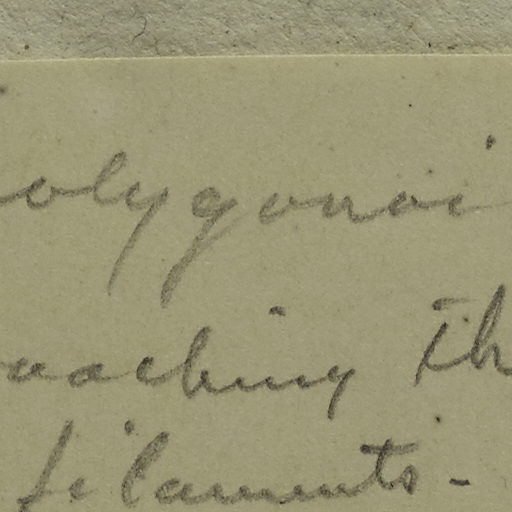 olygonoi
aching th
filaments -